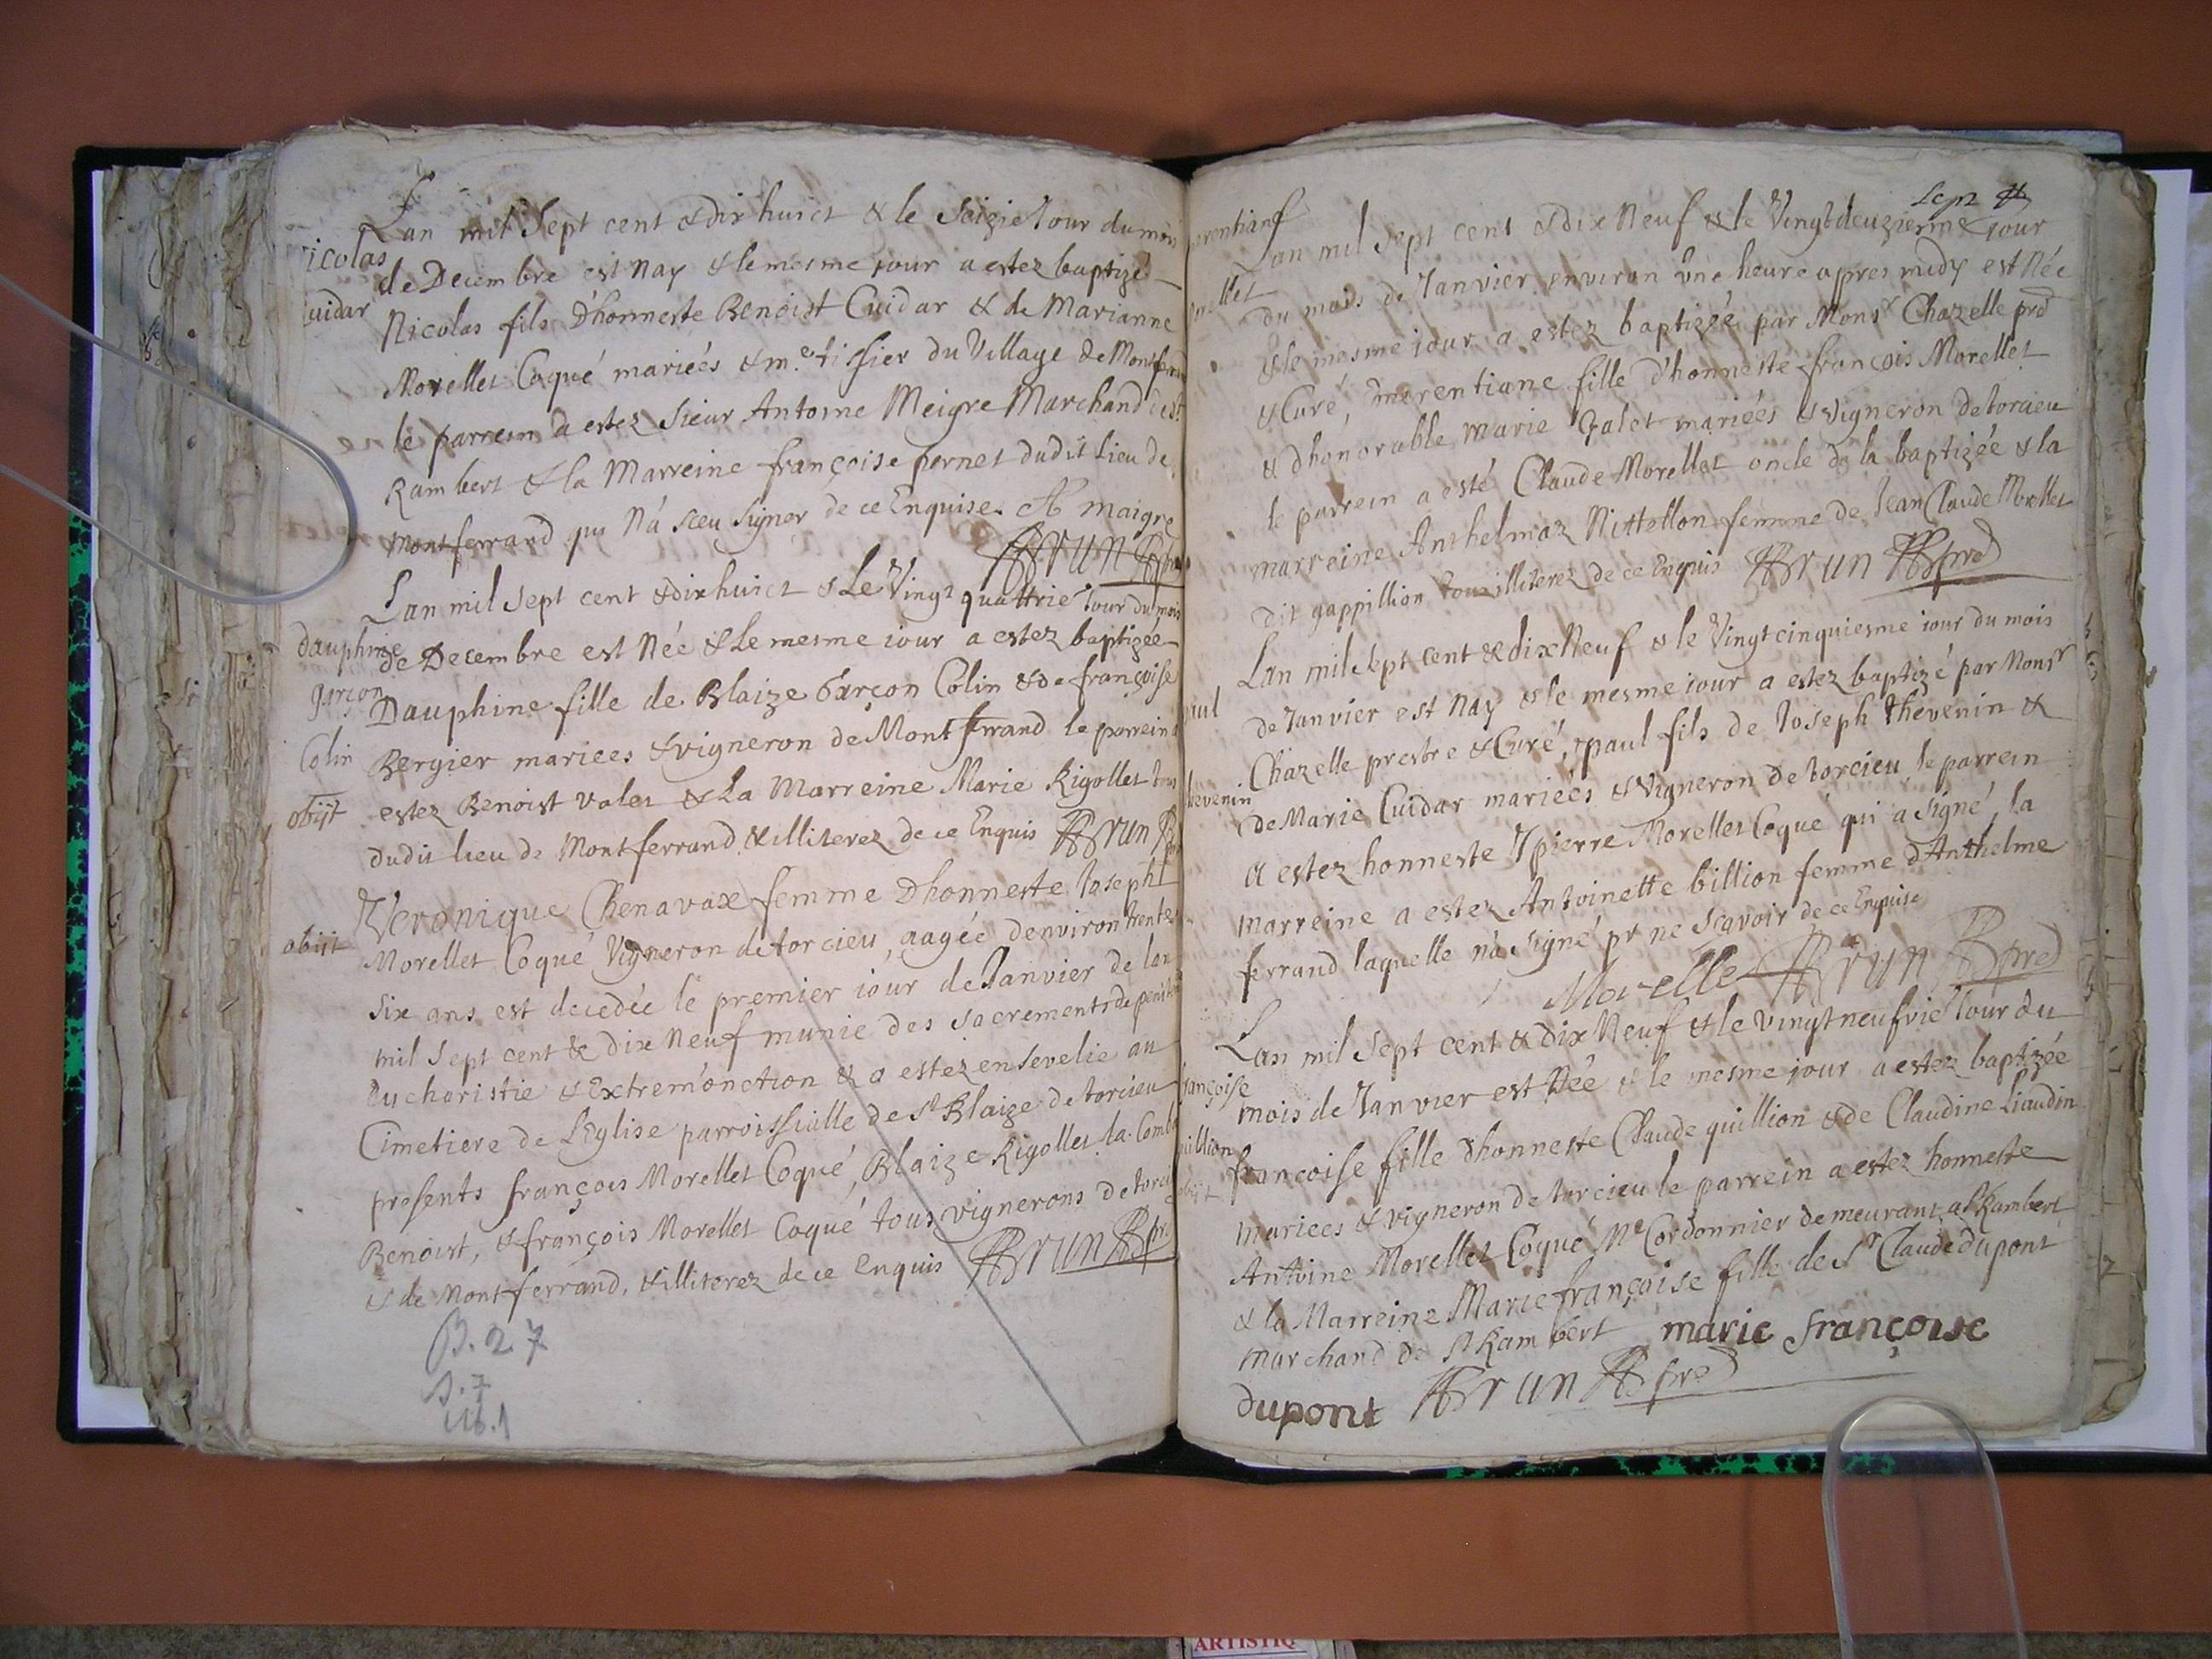 Lan mil sept cent & dix huict & le seizie Jour du mois
icolas
de Decembre est nay & le mesme jour a estez baptizé
uidar
Nicolas fils D'honneste Benoist Cuidar & de Marianne
Morellet Coqué mariéés & m.e tissier du Village de Montferrand
le parrein a estez Sieur Antoine Meigre Marchand de st
Rambert & la Marreine françoise pernet dudit lieu de
Montferrand qui n'à sceu signer de ce Enquise. A maigre
Brun pr
Lan mil sept cent & dix huict & Le Vingt quattrie Jour du mois
dauphine
de Decembre est née & Le mesme jour a estez baptizéé
garçon
Dauphine fille de Blaize Garçon Colin & de françoise
Colin
Bergier mariees & vigneron de Montferrand le parrein
obijt
estez Benoist valet & La Marreine Marie Rigollet tous
dudit lieu de Montferrand & illiterez de ce Enquis Brun
Veronique Chenavax femme Dhonneste Joseph
obijt
Morellet Coqué Vigneron de torcieu, aagéé denviron trente
six ans est decedée le premier jour de Janvier de lan
mil sept cent & dix neuf munie des sacrements de
Eucharistie & Extrem'onction & a estez ensevelie au
Cimetiere de L'Eglise parroissialle de St Blaize de torcieu
presents françois Morellet Coqué, Blaize Rigollet la Combe
Benoist, & françois Morellet Coqué tous vignerons de torcieu
& de Montferrand, & illiterez de ce Enquis Brun pr
B. 27
S. 7
M. 1
sept
Lan mil sept cent & dix neuf & le Vingt deuzieme jour
du mois de Janvier environ une heure apres midy est née
& le mesme jour a estez baptizéé par Monsr Chazelle pre
& Curé, merentiane fille d'honneste françois Morellet
& dhonorable marie Galet mariéés & vigneron de torcieu
le parrein a esté Claude Morellet oncle de la baptizéé & la
marreine Anthelmaz Nittollon femme de Jean Claude Morellet
dit gappillion tous illiterez de ce Enquis Brun pre
Lan mil sept cent & dix neuf & le Vingt cinquiesme jour du mois
aul
de Janvier est nay & le mesme jour a estez baptizé par Monsr
Chazelle prestre & Curé, paul fils de Joseph thevenin &
hevenin
de Marie Cuidar mariéés & vigneron de torcieu le parrein
a estez honneste pierre Morellet Coqué qui a signé, la
marreine a estez Antoinette billion femme d'Anthelme
ferrand laquelle n'à signé pr ne sçavoir de ce Enquise
Morelle Brun pre
Lan mil sept cent & dix neuf & le vingt neufvie Jour du
rançoise
mois de Janvier est née & le mesme jour a estez baptizée
uillion
francoise fille dhonneste Claude quillion & de Claudine Liaudin
obijt
mariees & vigneron de torcieu le parrein a estez honneste
Antoine Morellet Coqué Me Cordonnier demeurant a st Rambert
& la Marreine Marie françoise fille de Sr Claude dupont
marchand de st Rambert marie françoise
dupont Brun pre
ARTISTIQ